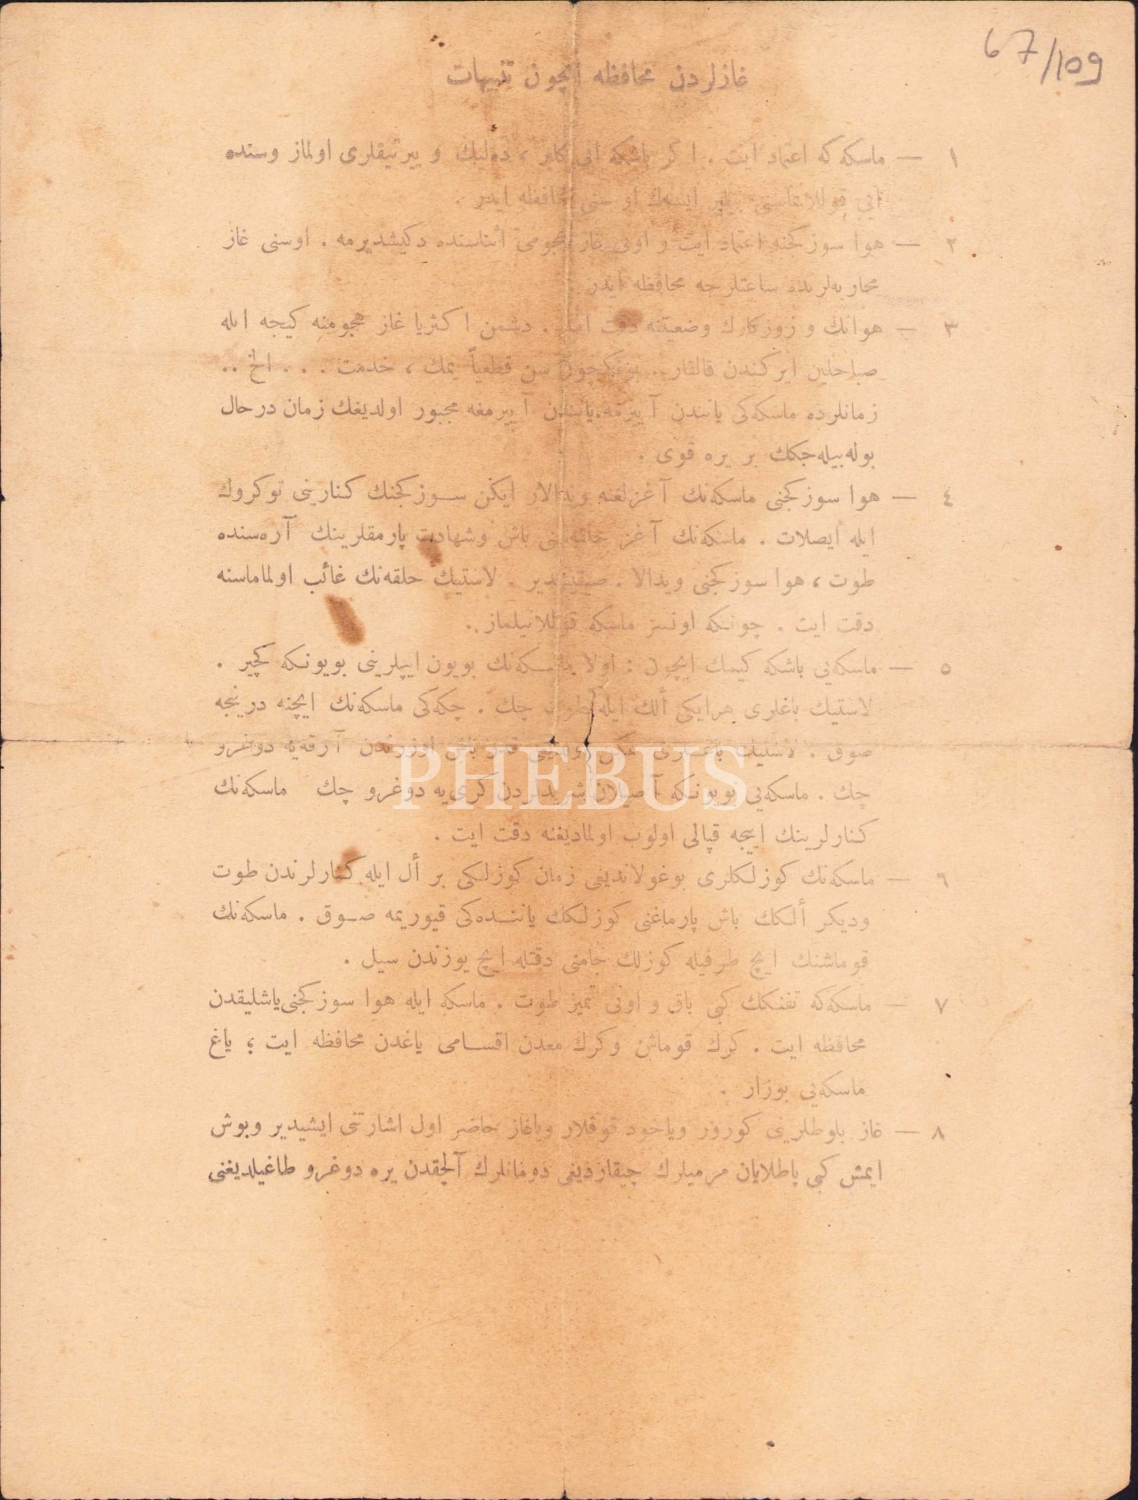 67/109
غازلردن محافظه ایچون تنبیهات
١ — ماسكه‌كه اعتماد ایت . اكر باشكه ائی كلیر ، ده‌لیك و ییرتیقلری اولماز وسنده
ائی قوللانماسنی بیلیر ایسه‌ك او سنی محافظه ایدر .
٢ — هوا سوزكجنه اعتماد ایت و اونی غاز هجومی اثناسنده دكیشدیرمه . اوسنی غاز
محاربه‌لرنده ساعتلرجه محافظه ایدر .
٣ — هوانك و روزكارك وضعیتنه دقت ایت . دشمن اكثریا غاز هجومنه كیجه ایله
صباحلین ایركندن قالقار . بونكچون سن قطعیاً یمك ، خدمت . . . الخ ..
زمانلرده ماسكه‌كی یانندن آییرمه . یانندن آییرمغه مجبور اولدیغك زمان درحال
بوله‌بیله‌جكك بر یره قوی .
٤ — هوا سوزكجنی ماسكه‌نك آغزلغنه ویدالار ایكن سوزكجنك كنارینی توكروك
ایله ایصلات . ماسكه‌نك آغز حلقه‌سنی باش وشهادت پارمقلرینك آره‌سنده
طوت ، هوا سوزكجنی ویدالا . صیقیشدیر . لاستیك حلقه‌نك غائب اولماماسنه
دقت ایت . چونكه اونسز ماسكه قوللانیلماز .
٥ — ماسكه‌یی باشكه كیمك ایچون : اولا ماسكه‌نك بویون ایپلرینی بویونكه كچیر .
لاستیك باغلری هرایكی ألك ایله طوت چك . چكه‌كی ماسكه‌نك ایچنه درینجه
صوق . لاستیك باغلری باش اوزرندن آرقه‌یه دوغرو
چك . ماسكه‌یی بویونكه آصیلان شریدلردن كری‌یه دوغرو چك ماسكه‌نك
كنارلرینك اییجه قپالی اولوب اولمادیغنه دقت ایت .
٦ — ماسكه‌نك كوزلكلری بوغولاندیغی زمان كوزلكی بر أل ایله كنارلرندن طوت
ودیكر ألكك باش پارماغنی كوزلكك یاننده‌كی قیوریمه صوق . ماسكه‌نك
قوماشنك ایچ طرفیله كوزلك جامنی دقتله ایچ یوزندن سیل .
٧ — ماسكه‌كه تفنكك كبی باق و اونی تمیز طوت . ماسكه ایله هوا سوزكجنی یاشلیقدن
محافظه ایت . كرك قوماش وكرك معدن اقسامی یاغدن محافظه ایت ؛ یاغ
ماسكه‌یی بوزار .
٨ — غاز بلوطلرینی كورور ویاخود قوقلار ویاغاز حاضر اول اشارتنی ایشیدیر وبوش
ایمش كبی پاطلایان مرمیلرك چیقاردیغی دومانلرك آلچقدن یره دوغرو طاغیلدیغنی
PHEBUS